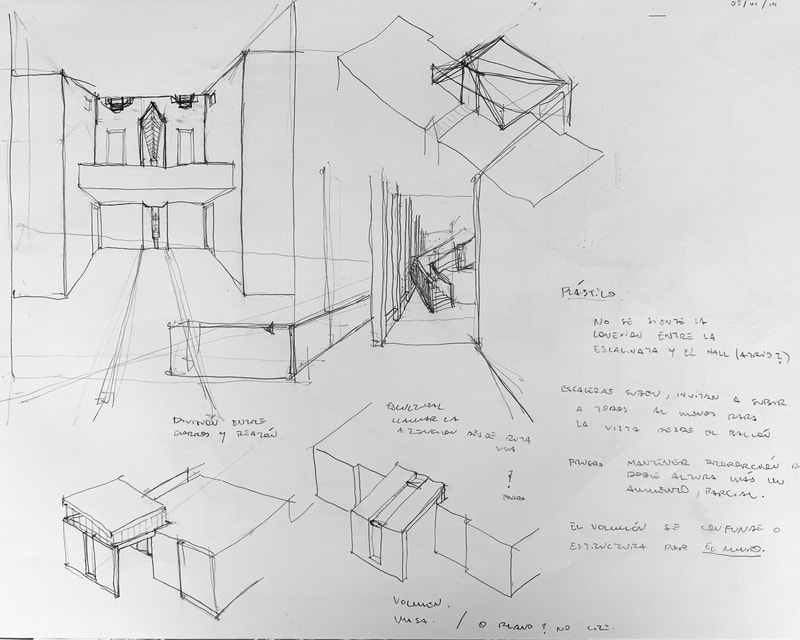 05/01/19
PLÁSTICO.
NO SE SIENTE LA
CONEXIÓN ENTRE LA
ESCALINATA Y EL HALL (ATRIO?)
ESCALERAS SUBEN, INVITAN A SUBIR
A TODOS AL MENOS PARA
LA VISTA DESDE EL BALCÓN
MANTENER PROPORCIÓN
DOBLE ALTURA MÁS UN
AUMENTO, PARCIAL.
EL VOLUMEN SE CONFUNDE O
ESTRUCTURA POR EL MURO.
DIVISIÓN ENTRE
CARROS Y PEATÓN.
ESCULTURAL
LLAMAR LA
ATENCIÓN DESDE RUTA
VIVA
VOLUMEN.
MASA. / O PLANO? NO